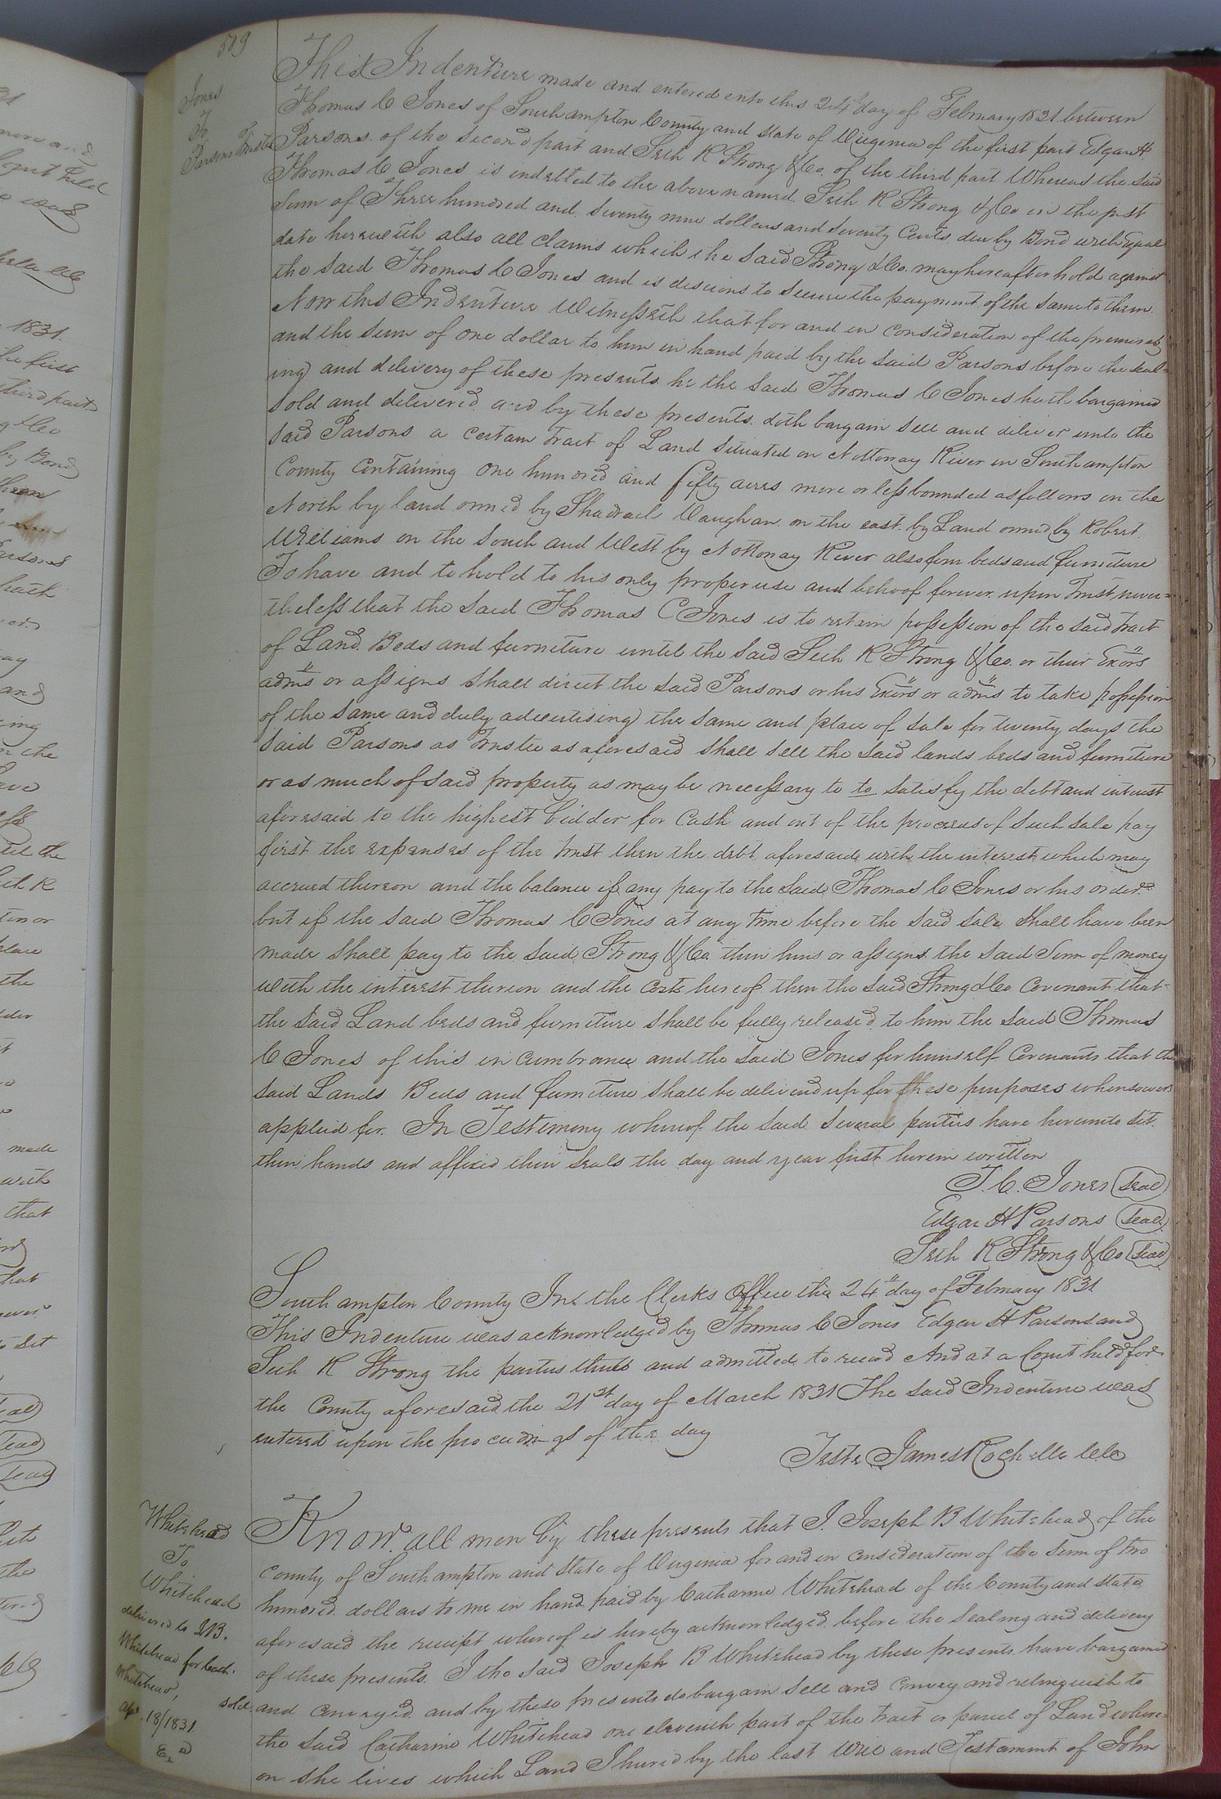 509
Jones
To
Parsons Trustee
This Indenture made and entered into this 24th day of February 1831 between
Thomas C Jones of Southampton County and State of Virginia of the first part Edgar H
Parsons of the second part and Seth K Strong & Co. of the third part Whereas the said
Thomas C Jones is indebted to the above named Seth K Strong & Co in the just
Sum of Three hundred and Seventy nine dollars and Seventy Cents due by Bond with equal
date herewith also all claims which the said Strong & Co. may hereafter hold against
the said Thomas C Jones and is desirous to Secure the payment of the same to them
Now this Indenture Witnesseth that for and in consideration of the premises
and the sum of one dollar to him in hand paid by the said Parsons before the seal-
ing and delivery of these presents he the said Thomas C Jones hath bargained
Sold and delivered and by these presents doth bargain sell and deliver unto the
said Parsons a certain tract of Land Situated on Nottoway River in Southampton
County Containing One hundred and fifty acres more or less bounded as follows on the
North by land owned by Shadrach Vaughan on the east by Land owned by Robert
Williams on the South and West by Nottoway River also four beds and furniture
To have and to hold to his only proper use and behoof forever upon Trust never-
theless that the said Thomas C Jones is to retain possession of the said tract
of Land Beds and furniture until the said Seth K Strong & Co. or their Exors
adms or assigns Shall direct the said Parsons or his Exors or adms to take possession
of the same and duly advertising the same and place of sale for twenty days the
said Parsons as Trustee as aforesaid shall sell the said lands beds and furniture
or as much of said property as may be necessary to to satisfy the debt and interest
aforesaid to the highest bidder for Cash and out of the proceeds of such sale pay
first the expenses of the trust then the debt aforesaid with the interest which may
accrued thereon and the balance if any pay to the said Thomas C Jones or his order
but if the said Thomas C Jones at any time before the said sale shall have been
made shall pay to the said Strong & Co. their heirs or assigns the said Sum of money
with the interest thereon and the costs hereof then the said Strong & Co Covenant that
the said Land beds and furniture shall be fully released to him the said Thomas
C Jones of this incumbrance and the said Jones for himself Covenants that the
said Lands Beds and furniture shall be delivered up for these purposes whensoever
applied for. In Testimony whereof the said Several parties have hereunto set
their hands and affixed their seals the day and year first herein written
T. C. Jones (Seal)
Edgar H Parsons (Seal)
Seth K Strong & Co (Seal)
Southampton County In the Clerks Office the 24th day of February 1831
This Indenture was acknowledged by Thomas C Jones Edgar H Parsons and
Seth K Strong the parties thereto and admitted to record And at a Court held for
the County aforesaid the 21st day of March 1831 The said Indenture was
entered upon the proceedings of the day
Teste James Rochelle Clk
Whitehead
To
Whitehead
delivered to J.B.
Whitehead for Cath.
Whitehead,
apr. 18/1831
Exd
Know all men by these presents that I. Joseph B Whitehead of the
County of Southampton and State of Virginia for and in consideration of the Sum of two
hundred dollars to me in hand paid by Catharine Whitehead of the County and State
aforesaid the receipt whereof is hereby acknowledged before the Sealing and delivery
of these presents. I the said Joseph B Whitehead by these presents have bargained
sold and conveyed and by these presents do bargain sell and convey and relinquish to
the said Catharine Whitehead one eleventh part of the tract or parcel of Land where-
on she lives which Land I hired by the last Will and Testament of John